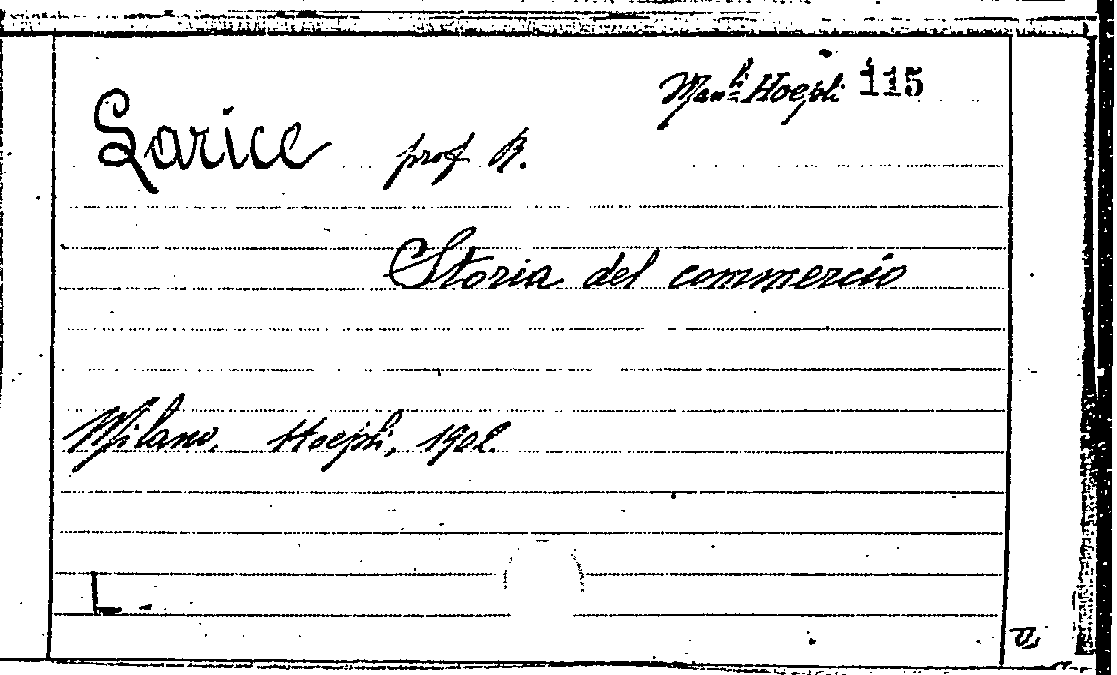 Man.li Hoepli 115
Larice prof R.
Storia del commercio
Milano, Hoepli, 1902.
L.